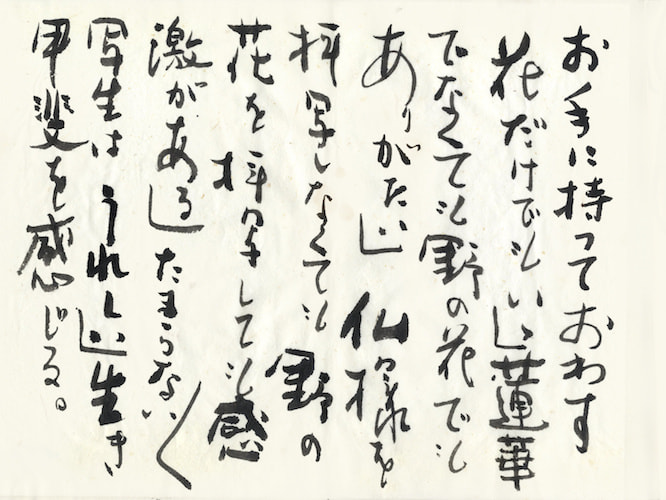 お手に持っておわす
花だけでもいい蓮華
でなくても野の花でも
ありがたい仏様を
拝写しなくても野の
花を拝写しても感
激があるたまらない
写生はうれしい生き
甲斐を感じる。